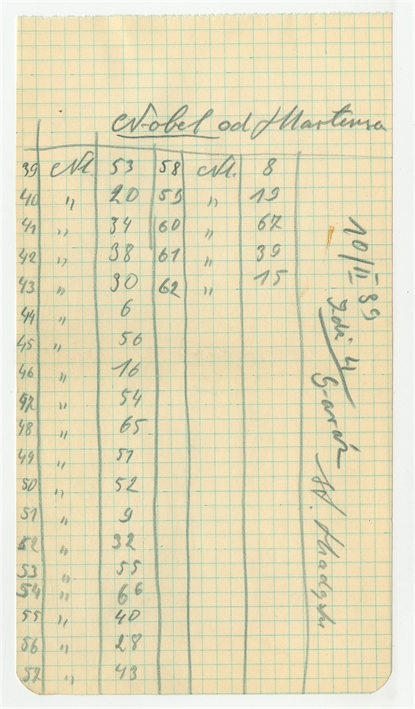 Nobel od Martensa
39 Nk. 53 58 Nk. 8
40 " 20 59 " 19
41 " 34 60 " 67
42 " 38 61 " 39
43 " 30 62 " 15
44 " 6
45 " 56
46 " 16
47 " 54
48 " 65
49 " 51
50 " 52
51 " 9
52 " 32
53 " 55
54 " 66
55 " 40
56 " 28
57 " 43
10/II 39